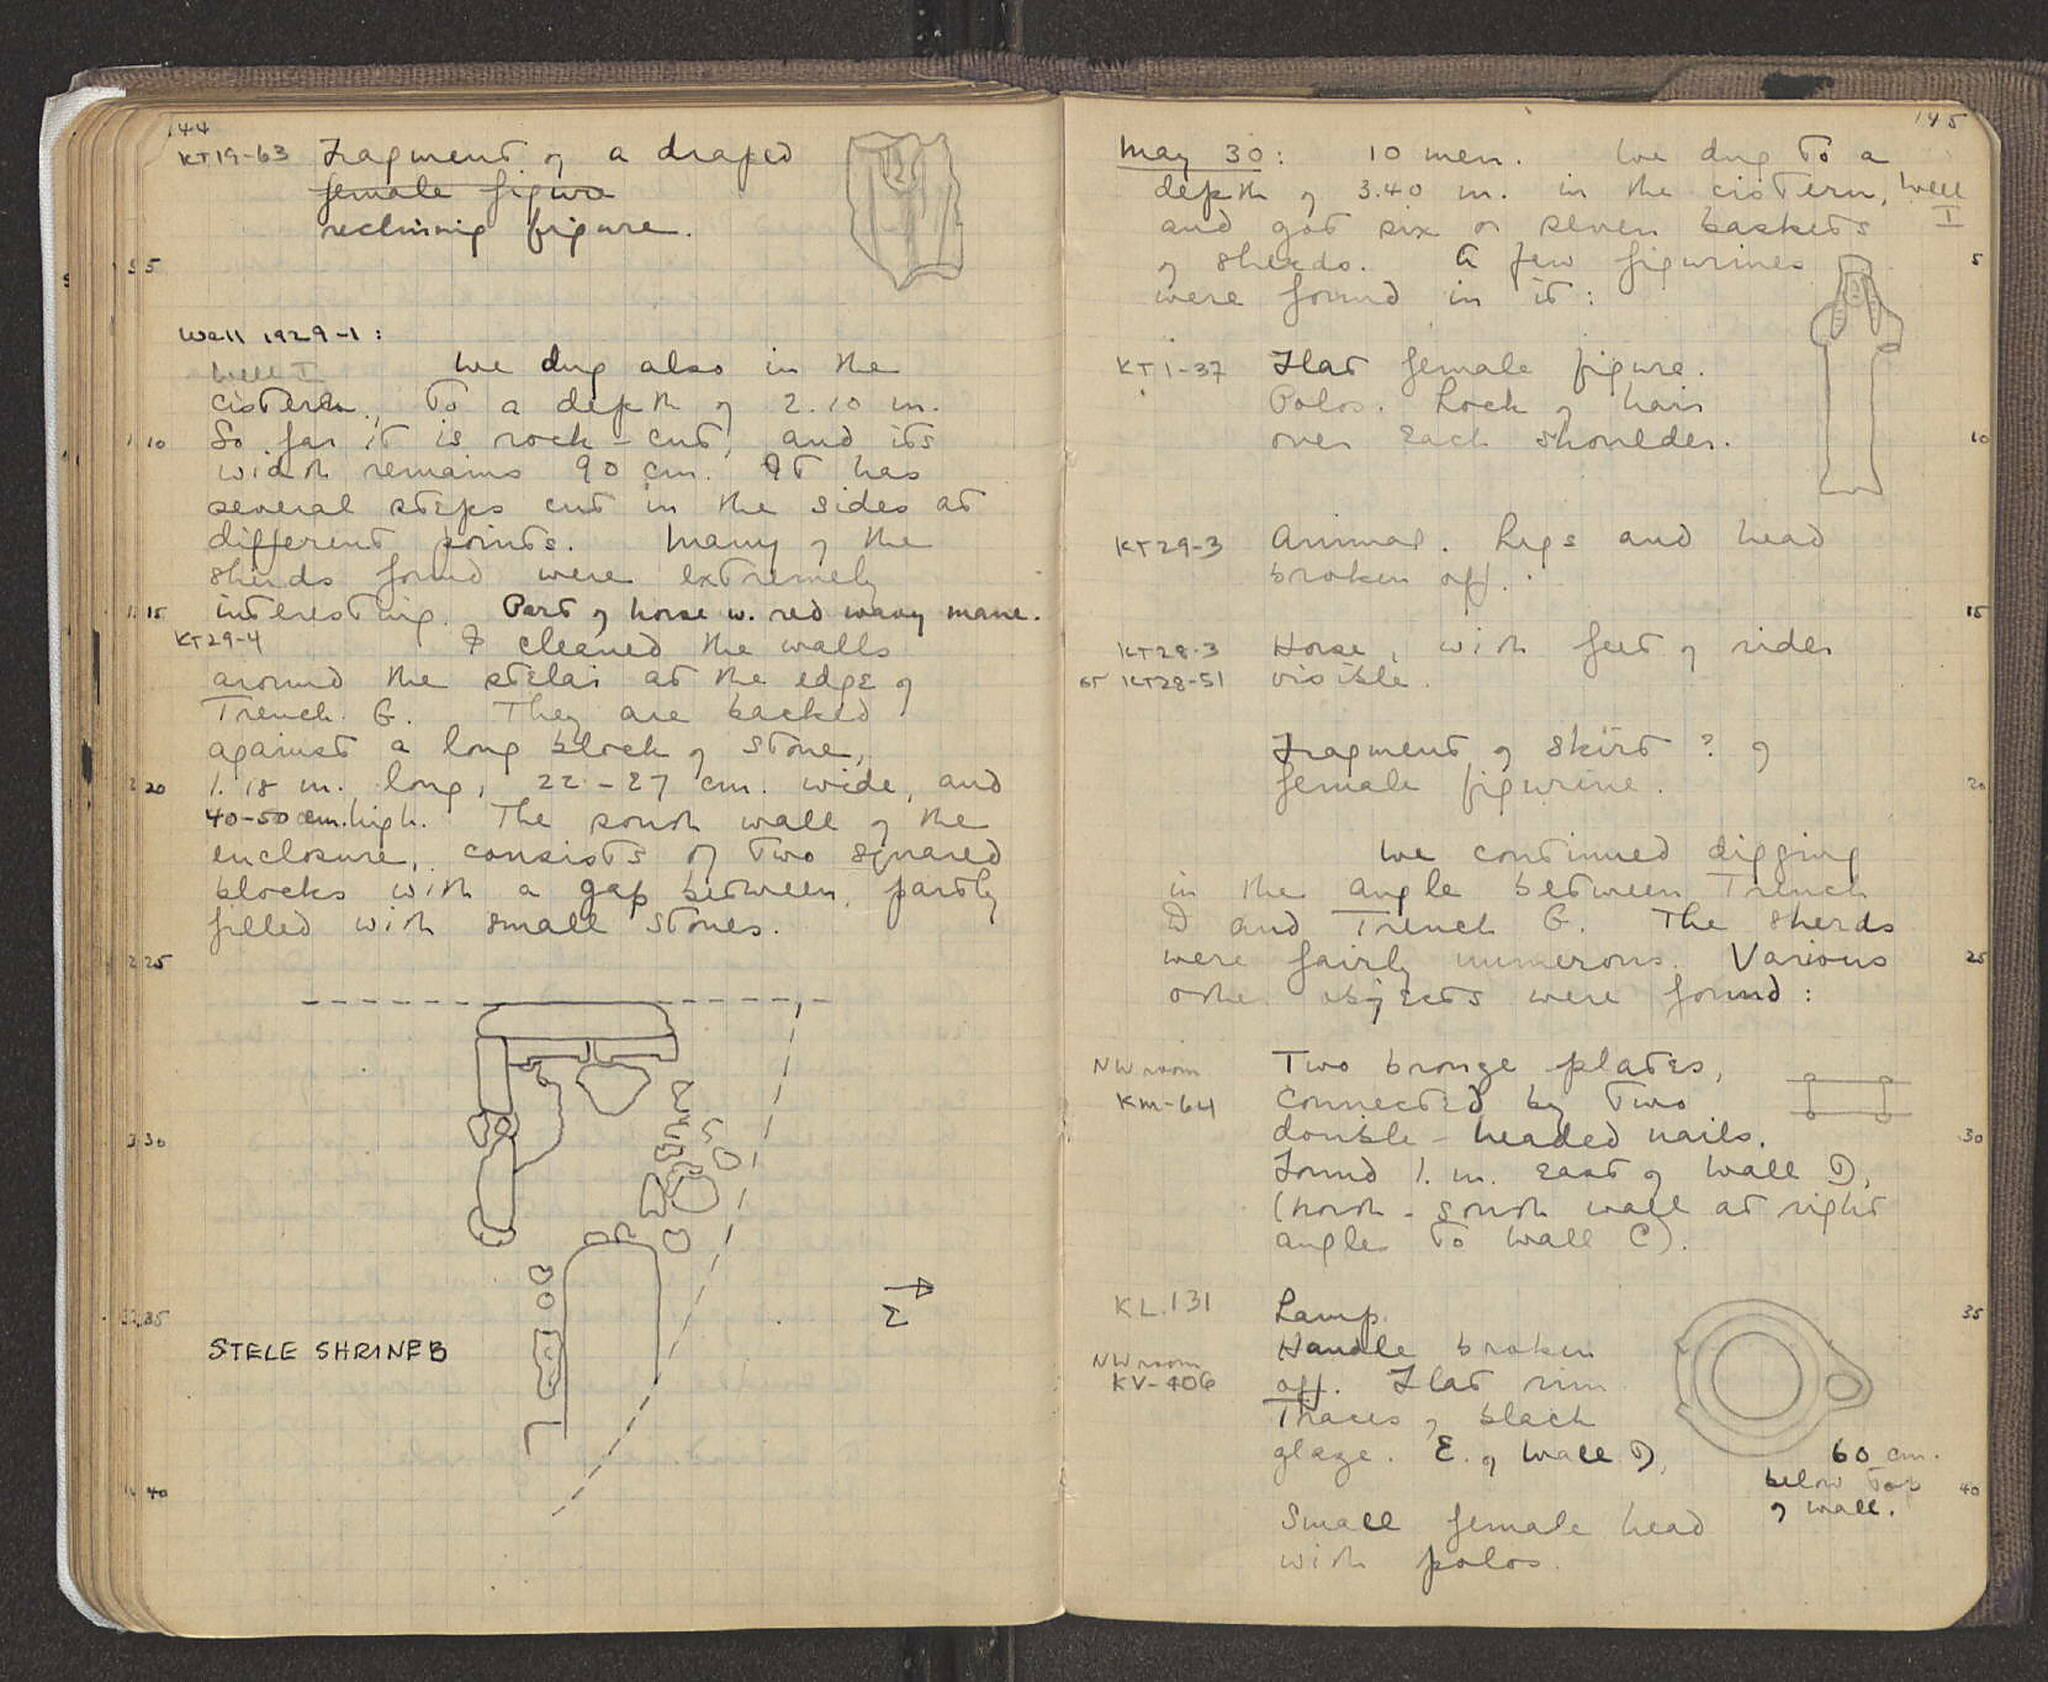 144
KT19-63 Fragment of a draped
female figure
reclining figure.
5
Well 1929-1:
Well I We dug also in the
cistern, to a depth of 2.10 m.
10 So far it is rock-cut, and its
width remains 90 cm. It has
several steps cut in the sides at
different points. Many of the
sherds found were extremely
15 interesting. Part of horse w. red wavy mane.
KT29-4 I cleaned the walls
around the stelai at the edge of
Trench G. They are backed
against a long block of stone,
20 1.18 m. long, 22-27 cm. wide, and
40-50 cm. high. The south wall of the
enclosure, consists of two squared
blocks with a gap between, partly
filled with small stones.
25
30
35
Σ
STELE SHRINE B
40
145
May 30: 10 men. We dug to a
depth of 3.40 m. in the cistern, Well
I
and got six or seven baskets
of sherds. A few figurines 5
were found in it:
KT1-37 Flat female figure.
Polos. Lock of hair
over each shoulder. 10
KT29-3 Animal. Legs and head
broken off.
15
KT28-3 Horse, with feet of rider
or KT28-51 visible.
Fragment of skirt? of
female figurine. 20
We continued digging
in the angle between Trench
D and Trench G. The sherds
were fairly numerous. Various 25
other objects were found:
NW room Two bronze plates,
KM-64 connected by two
double-headed nails. 30
Found 1. m. east of Wall D,
(north-south wall at right
angles to Wall C).
KL.131 Lamp. 35
Handle broken
NW room
KV-406 off. Flat rim
Traces of black
glaze. E. of Wall D, 60 cm.
below top 40
of wall.
Small female head
with polos.